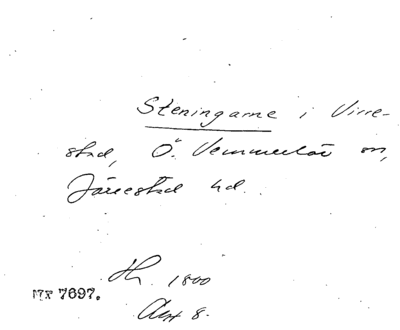 Steningarne i Virre-
stad, Ö. Vemmerlöv sn,
Järrestad hd.
Hr. 1800
MX 7697.
Akt 8.